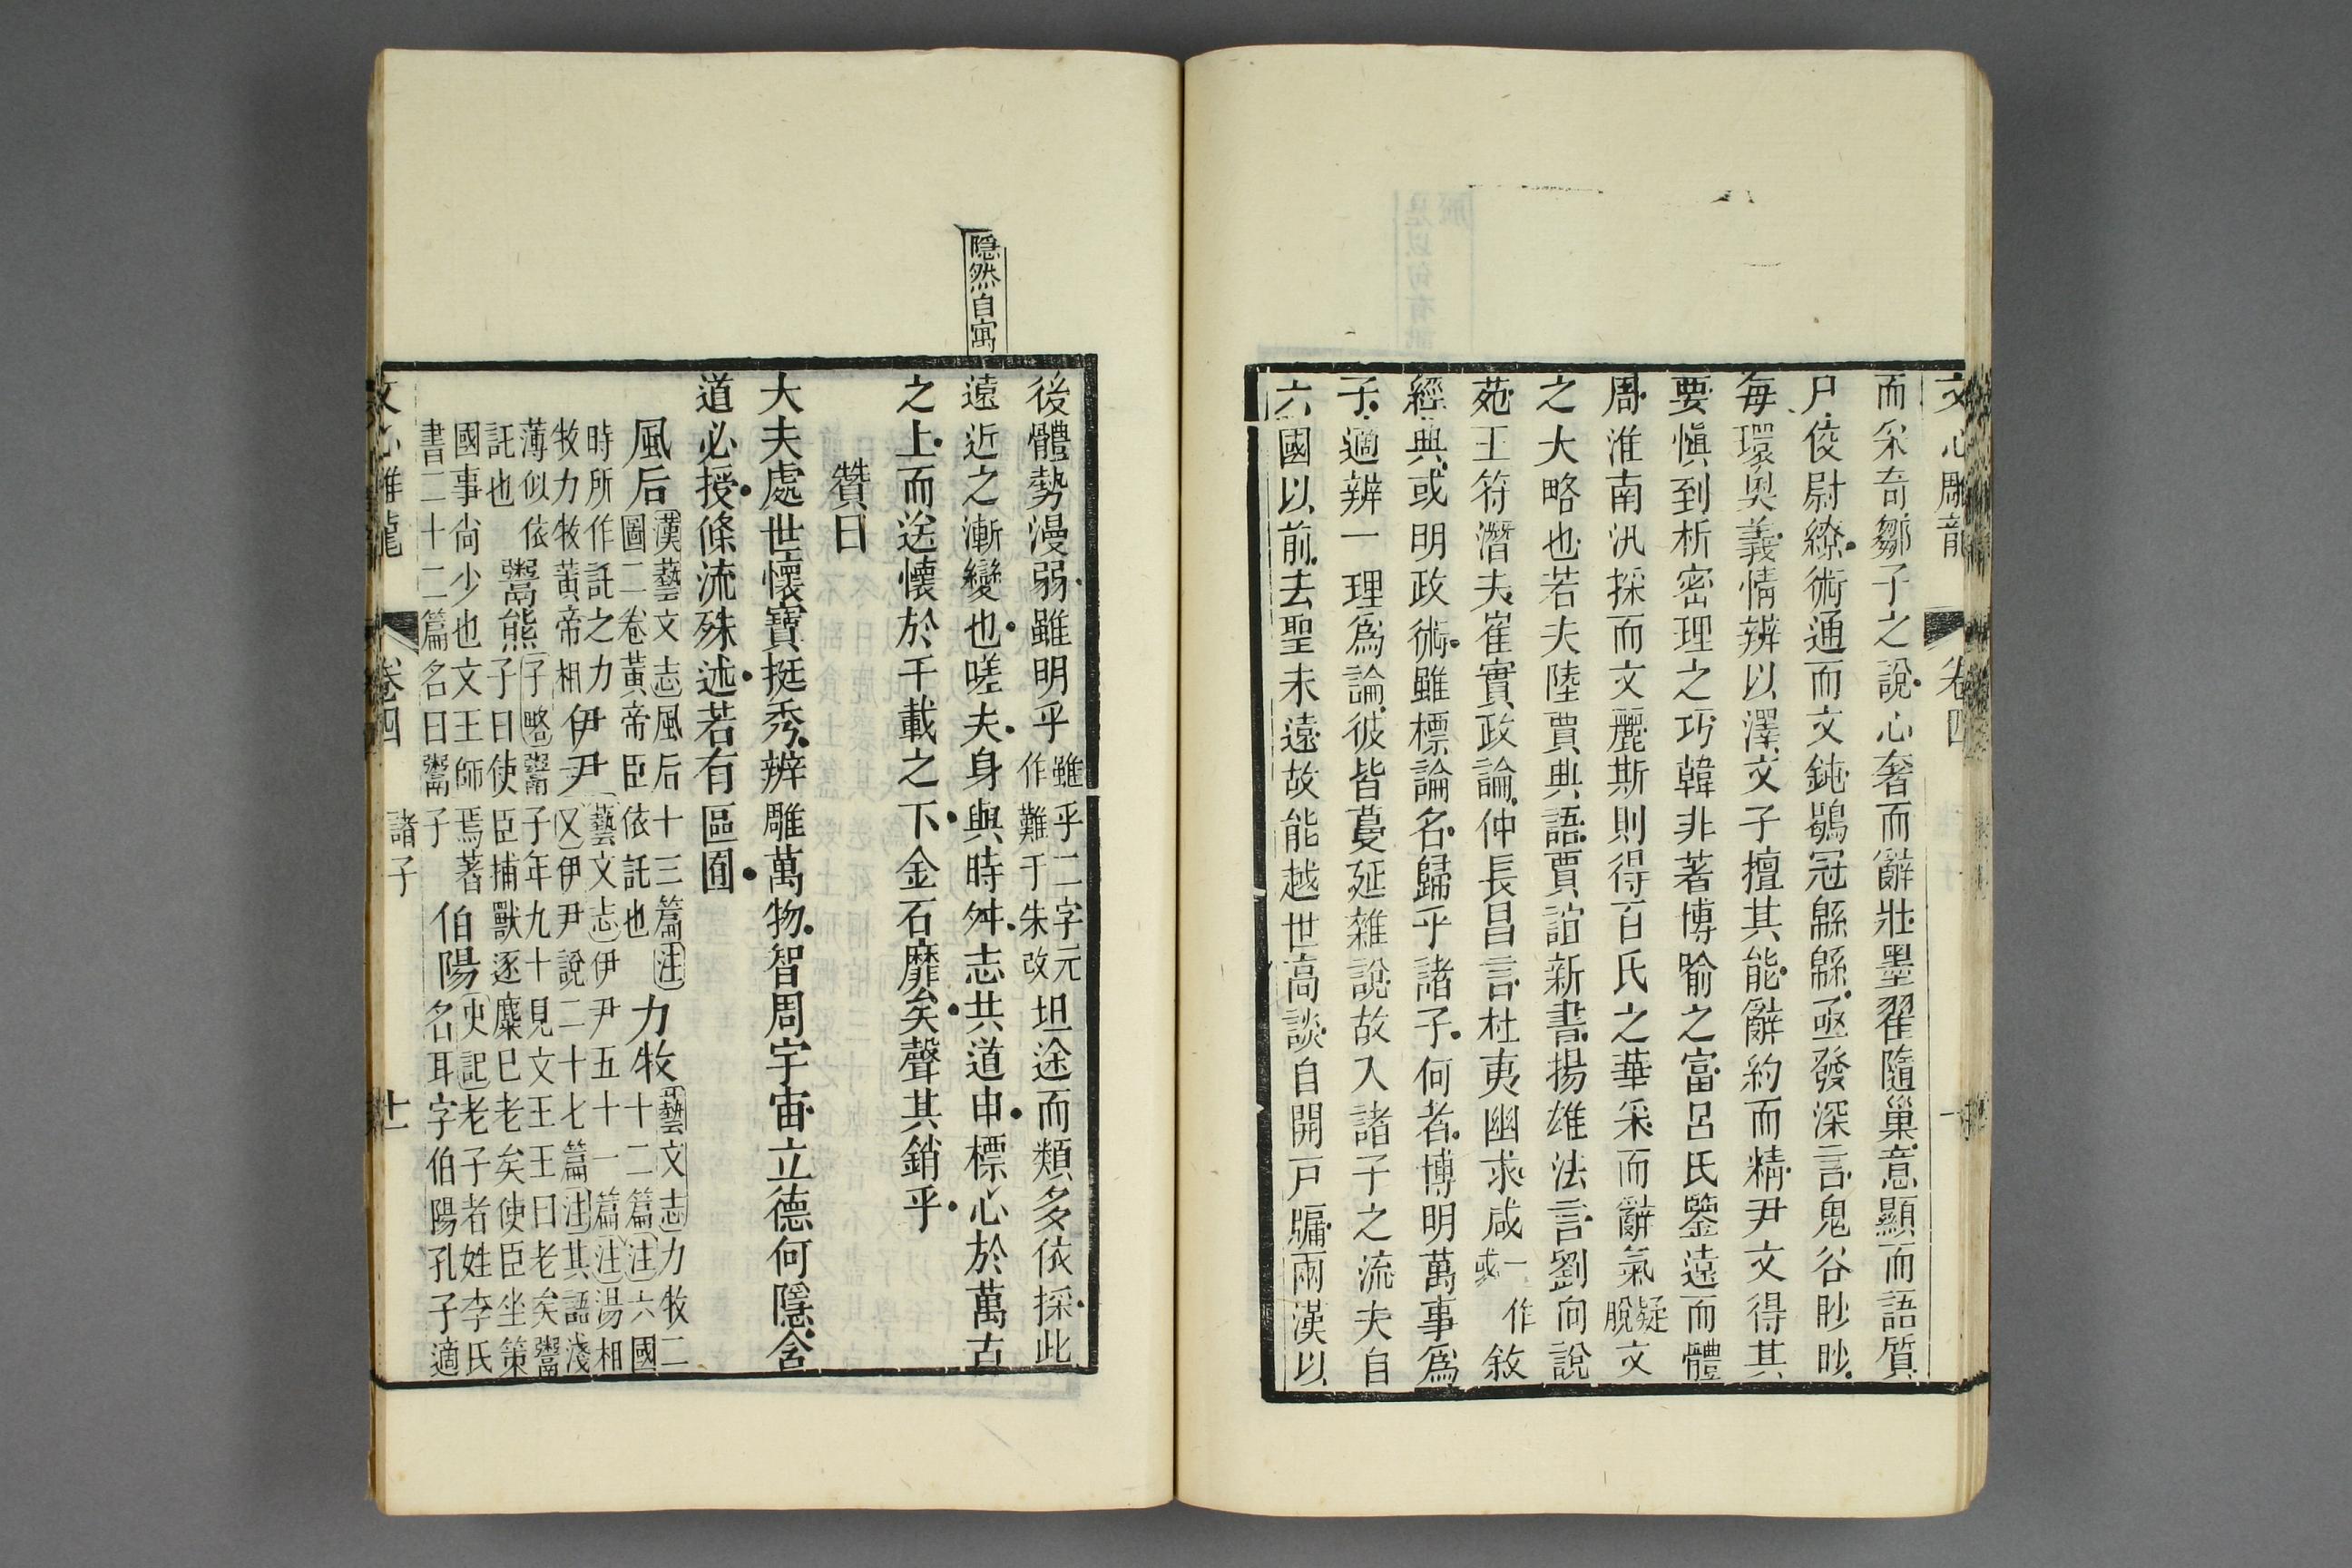 文心雕龍 卷四
而采奇鄒子之說心奢而辭壯墨翟隨巢意顯而語質
尸佼尉繚術通而文鈍鶡冠緜緜亟發深言鬼谷眇眇
每環奥義情辨以澤文子擅其能辭約而精尹文得其
要慎到析密理之巧韓非著博喻之富呂氏鑒遠而體
周淮南汎採而文麗斯則得百氏之華采而辭氣疑脫文
之大略也若夫陸賈典語賈誼新書揚雄法言劉向說
苑王符潛夫崔實政論仲長昌言杜夷幽求咸一作或敘
經典或明政術雖標論名歸乎諸子何者博明萬事爲
子適辨一理爲論彼皆蔓延雜說故入諸子之流夫自
六國以前去聖未遠故能越世高談自開戸牖兩漢以
隠然自寓
後體勢漫弱雖明乎雖乎二字元作難于朱改坦途而類多依採此
遠近之漸變也嗟夫身與時舛志共道申標心於萬古
之上而送懷於千載之下金石靡矣聲其銷乎
贊曰
大夫處世懷寶挺秀辨雕萬物智周宇宙立德何隱含
道必授條流殊述若有區囿
風后漢藝文志風后十三篇注圖二卷黃帝臣依託也 力牧藝文志力牧二十二篇注六國
時所作託之力牧力牧黃帝相 伊尹藝文志伊尹五十一篇注湯相又伊尹說二十七篇注其語淺
薄似依託也 鬻熊子略鬻子年九十見文王王曰老矣鬻子曰使臣捕獸逐麋已老矣使臣坐策
國事尚少也文王師焉著書二十二篇名曰鬻子 伯陽史記老子者姓李氏名耳字伯陽孔子適
文心雕龍 卷四 諸子 十一